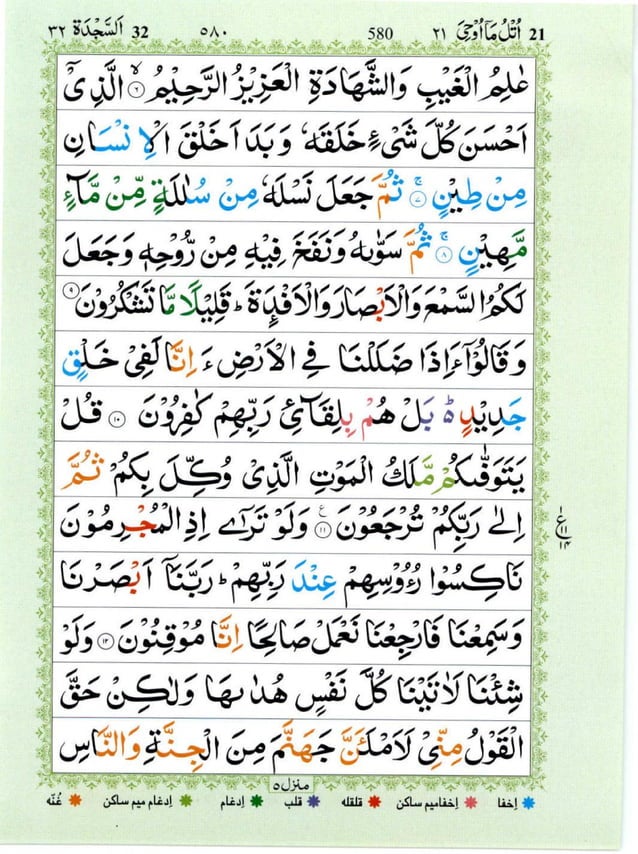 21 اُتْلُ مَآ اُوْحِیَ ۲۱ 580 ۵۸۰ 32 اَلسَّجْدَة ۳۲
عٰلِمُ الْغَيْبِ وَالشَّهَادَةِ الْعَزِيْزُ الرَّحِيْمُ ۙ۶ الَّذِيْٓ
اَحْسَنَ كُلَّ شَيْءٍ خَلَقَهٗ وَبَدَاَ خَلْقَ الْاِنْسَانِ
مِنْ طِيْنٍ ۚ۷ ثُمَّ جَعَلَ نَسْلَهٗ مِنْ سُلٰلَةٍ مِّنْ مَّآءٍ
مَّهِيْنٍ ۚ۸ ثُمَّ سَوّٰىهُ وَنَفَخَ فِيْهِ مِنْ رُّوْحِهٖ وَجَعَلَ
لَكُمُ السَّمْعَ وَالْاَبْصَارَ وَالْاَفْـِٕدَةَ ؕ قَلِيْلًا مَّا تَشْكُرُوْنَ ۹
وَقَالُوْٓا ءَاِذَا ضَلَلْنَا فِي الْاَرْضِ ءَاِنَّا لَفِيْ خَلْقٍ
جَدِيْدٍ ؕ۬ بَلْ هُمْ بِلِقَآئِ رَبِّهِمْ كٰفِرُوْنَ ۱۰ قُلْ
يَتَوَفّٰىكُمْ مَّلَكُ الْمَوْتِ الَّذِيْ وُكِّلَ بِكُمْ ثُمَّ
اِلٰى رَبِّكُمْ تُرْجَعُوْنَ ۱۱ ع وَلَوْ تَرٰٓى اِذِ الْمُجْرِمُوْنَ
ع ۱۱ ۱۴
نَاكِسُوْا رُءُوْسِهِمْ عِنْدَ رَبِّهِمْ ؕ رَبَّنَآ اَبْصَرْنَا
وَسَمِعْنَا فَارْجِعْنَا نَعْمَلْ صَالِحًا اِنَّا مُوْقِنُوْنَ ۱۲ وَلَوْ
شِئْنَا لَاٰتَيْنَا كُلَّ نَفْسٍ هُدٰىهَا وَلٰكِنْ حَقَّ
الْقَوْلُ مِنِّيْ لَاَمْلَـَٔنَّ جَهَنَّمَ مِنَ الْجِنَّةِ وَالنَّاسِ
منزل ۵
اِخفا اِخفامیم ساکن قلقله قلب اِدغام اِدغام میم ساکن غُنّه